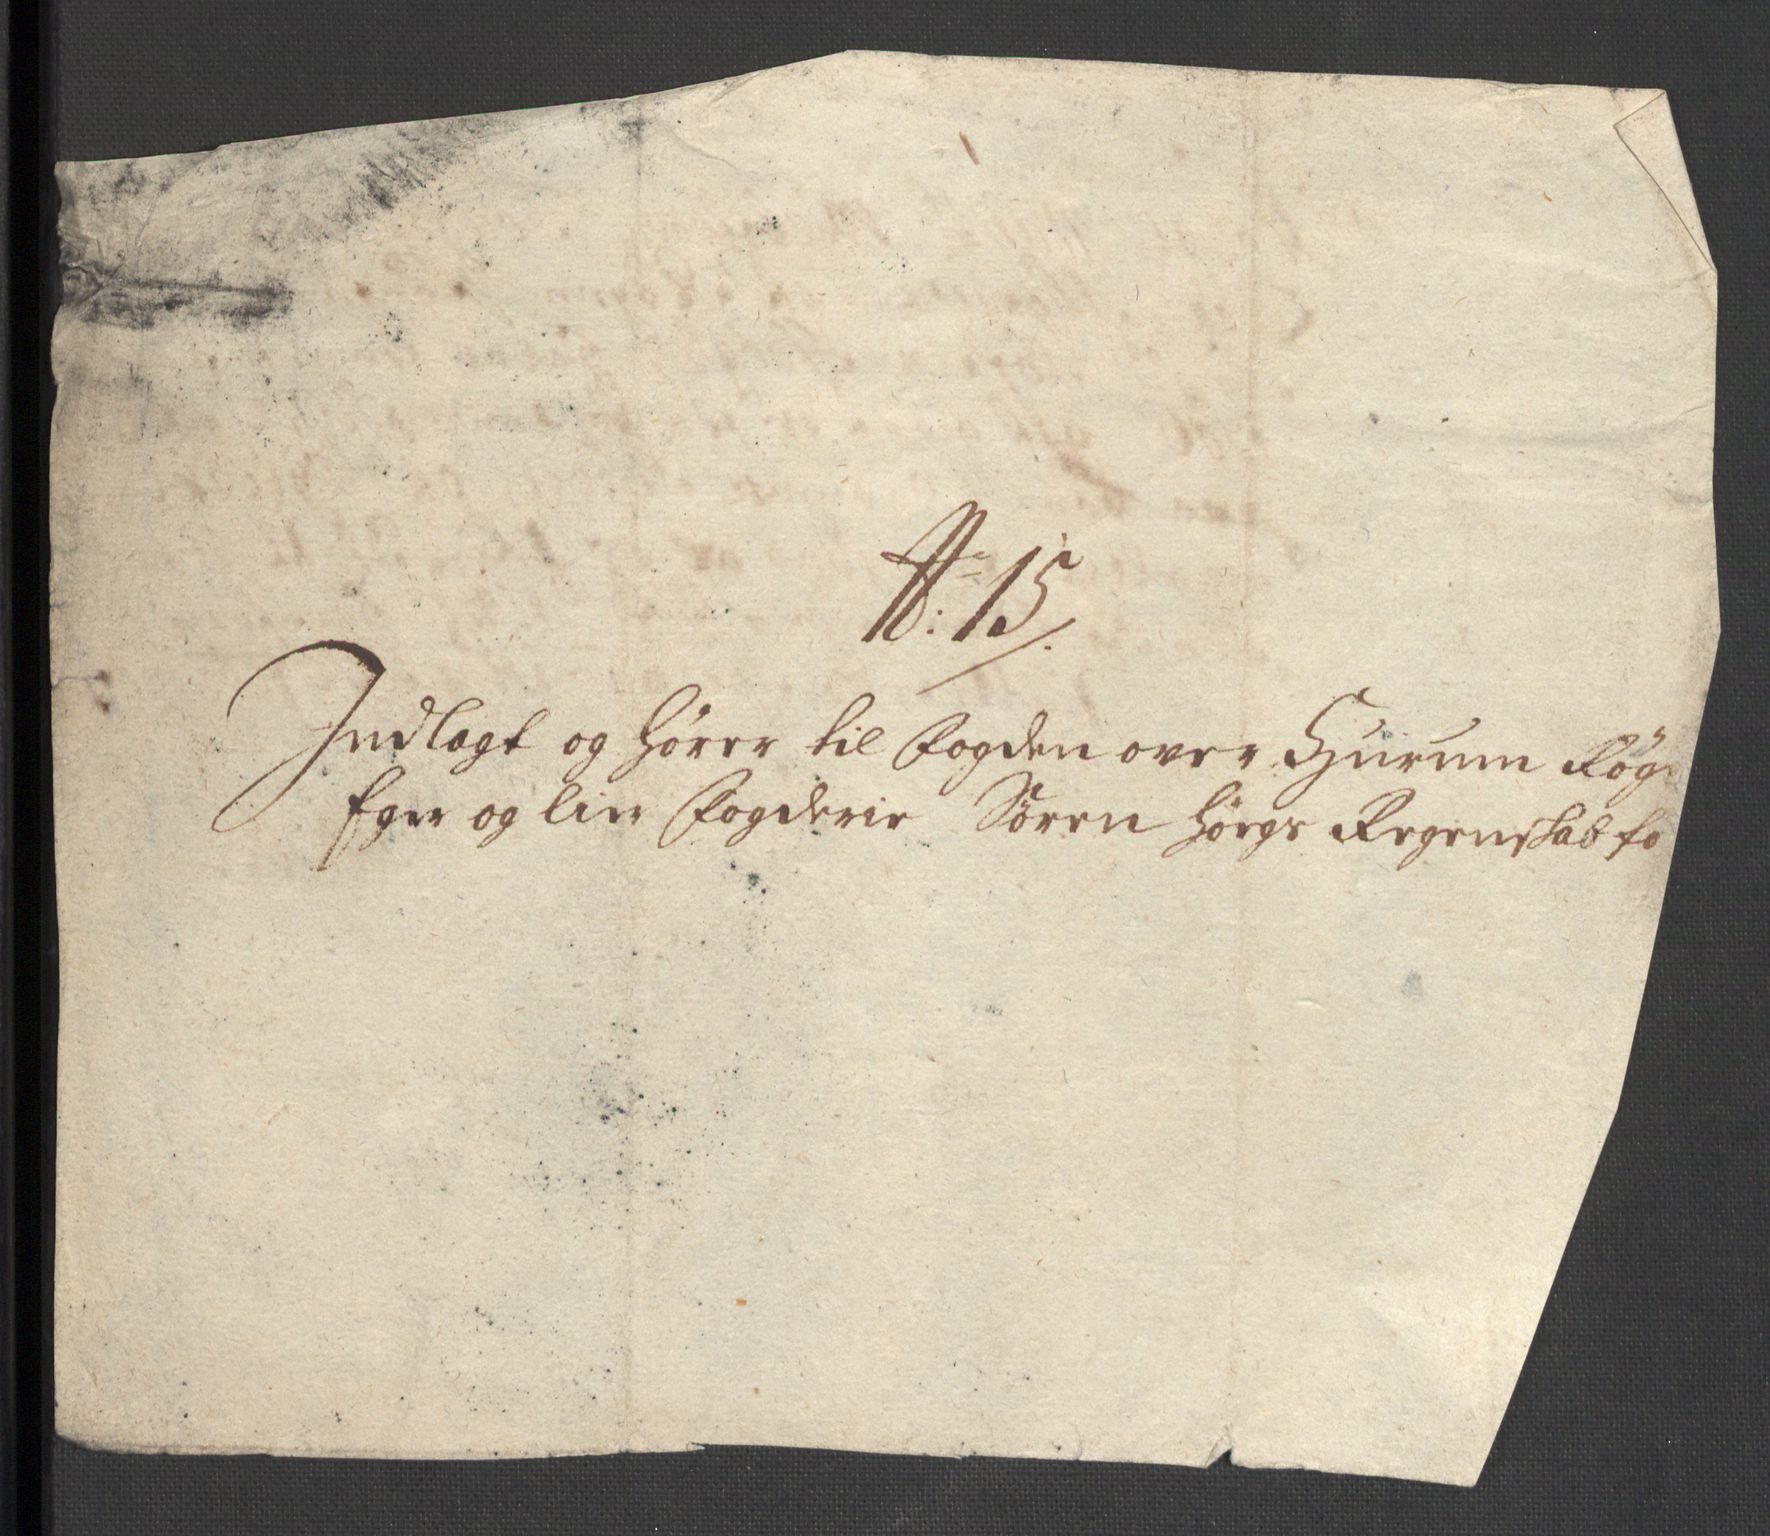 No: 15.
Indlagt og hører til Fogden over Hurum Røg
Eger og lier Fogderie Søren Høegs Regenskab fo